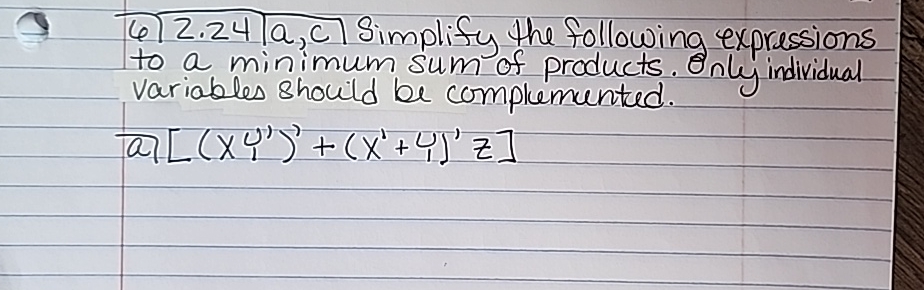 6) 2.24 a,c) Simplify the following expressions
to a minimum sum of products. Only individual
variables should be complemented.
a) [(XY')' + (X'+Y)'Z]